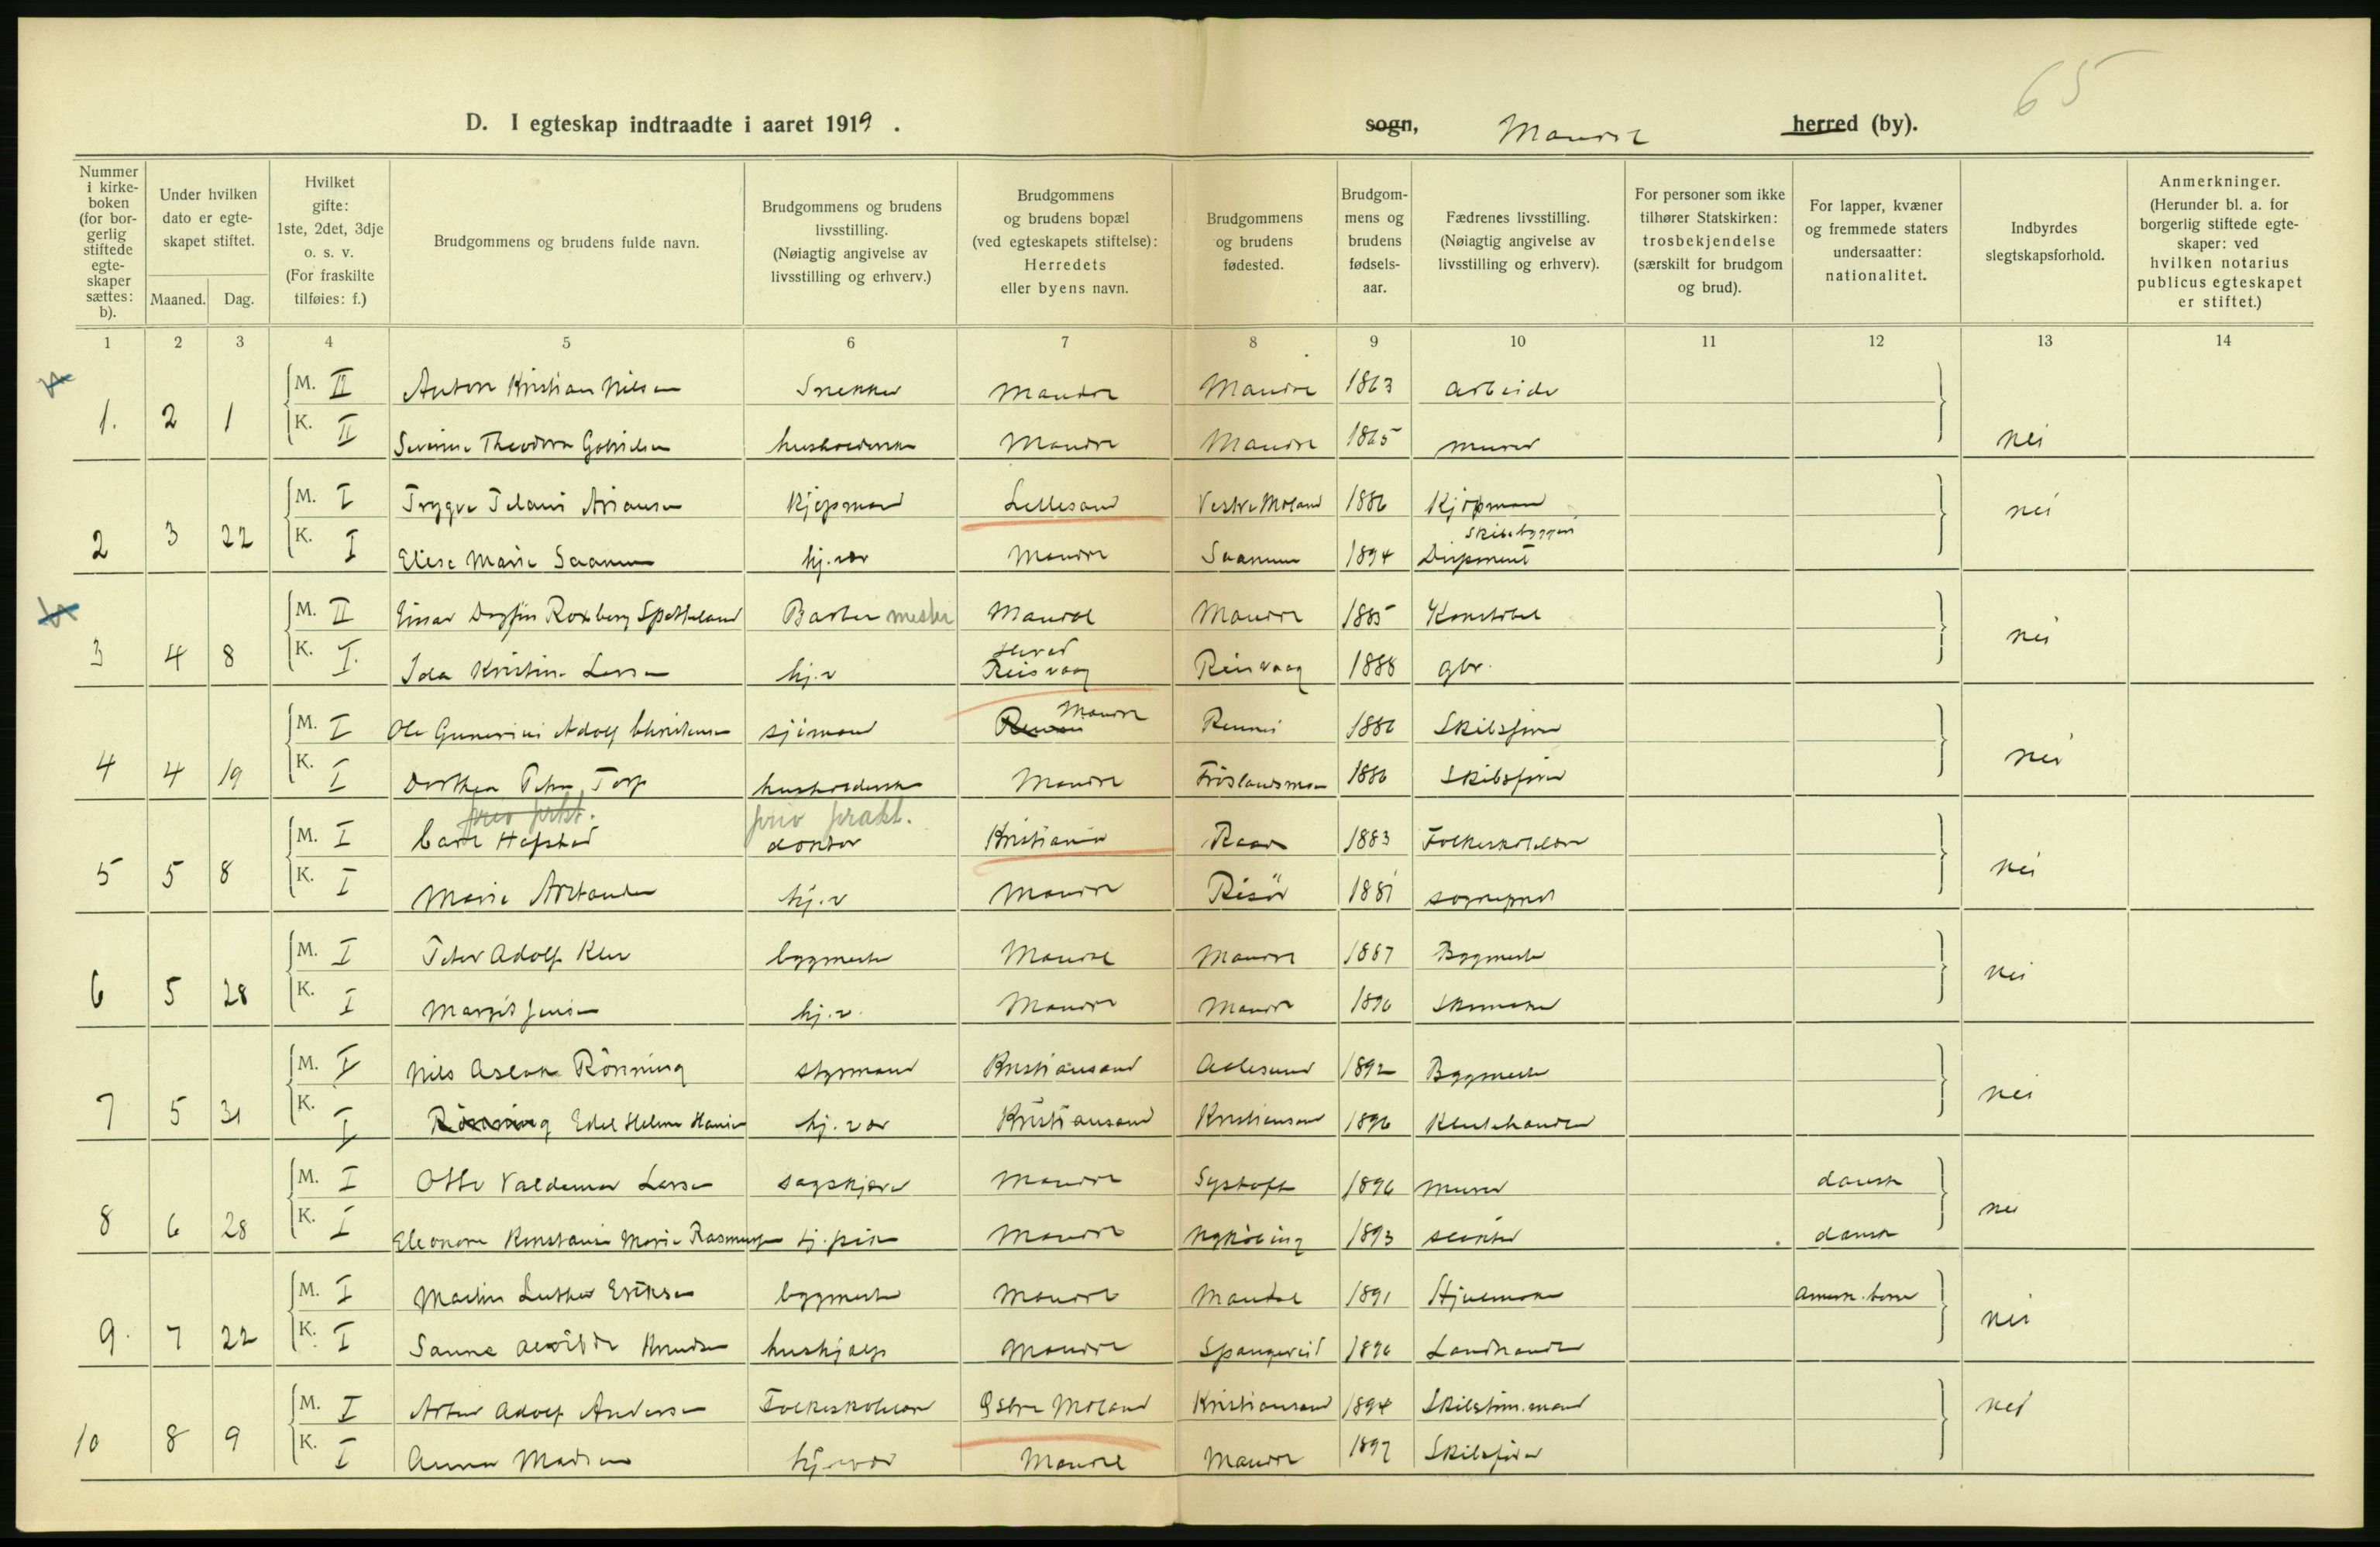 65
D. I egteskap indtraadte i aaret 1919. sogn, Mandal herred (by).
Nummer i kirkeboken (for borgerlig stiftede egteskaper sættes: b).
Under hvilken dato er egteskapet stiftet.
Maaned. Dag.
Hvilket gifte: 1ste, 2det, 3dje o. s. v. (For fraskilte tilføies: f.)
Brudgommens og brudens fulde navn.
Brudgommens og brudens livsstilling. (Nøiagtig angivelse av livsstilling og erhverv.)
Brudgommens og brudens bopæl (ved egteskapets stiftelse): Herredets eller byens navn.
Brudgommens og brudens fødested.
Brudgommens og brudens fødselsaar.
Fædrenes livsstilling. (Nøiagtig angivelse av livsstilling og erhverv).
For personer som ikke tilhører Statskirken: trosbekjendelse (særskilt for brudgom og brud).
For lapper, kvæner og fremmede staters undersaatter: nationalitet.
Indbyrdes slegtskapsforhold.
Anmerkninger. (Herunder bl. a. for borgerlig stiftede egteskaper: ved hvilken notarius publicus egteskapet er stiftet.)
1 2 3 4 5 6 7 8 9 10 11 12 13 14
M. II Anton Kristian Nilsen Snekker Mandal Mandal 1863 arbeider
1. 2 1 K. II Severine Theodora Gabrielsen husholderske Mandal Mandal 1865 murer nei
M. I Trygve Kjøpmand Lillesand Vestre Moland 1886 Kjøpmand nei
Skibsbygger
2 3 22 K. I Elise Marie Saanum hj. vær Mandal Saanum 1894
M. II Einar Dagfin Roxberg Spetteland Barber mester Mandal Mandal 1885 Konstabel nei
herad
3 4 8 K. I. Ida Kristine Larsen hj. v Reisvaag Reisvaag 1888 gbr.
Mandal
M. I Ole Gunerius Adolf Christensen sjømand 1886 Skibsfører
4 4 19 K. I Dorthea Petra Torp husholderske Mandal Frøslandsmoen 1886 Skibsfører nei
priv prkt. priv prakt.
M. I Carl Hafstad doktor Kristiania Raade 1883 Folkeskolelærer
5 5 8 K. I Marie hj. v Mandal Risør 1881 sogneprest nei
M. I Peter Adolf Klev byggmester Mandal Mandal 1887 Byggmester
6 5 28 K. I Margit Jensen hj. v. Mandal Mandal 1896 Skomaker nei
M. I Nils Aslak Rönning styrmand Kristiansand Aalesund 1892 Byggmester
7 5 31 K. I Rönning Edel Helene Hansen hj. vær Kristiansand Kristiansand 1896 nei
M. I Otto Valdemar Larsen sagskjærer Mandal Systofte 1896 murer dansk
8 6 28 K. I Eleonora Konstanse Marie Rasmussen tj. pike Mandal Nykøbing 1893 slakter dansk nei
M. I Martin Luther Eriksen byggmester Mandal Mandal 1891 Hjulmaker Amerik. borger
9. 7 22 K. I Sanna Alvilde Knudsen hushjælp Mandal Spangereid 1896 Landhandler nei
M. I Artur Adolf Andersen Folkeskolelærer Østre Moland Kristiansand 1894 Skibstøm.mand nei
10 8 9 K. I Anna Madsen hj. vær Mandal Mandal 1897 Skibsfører